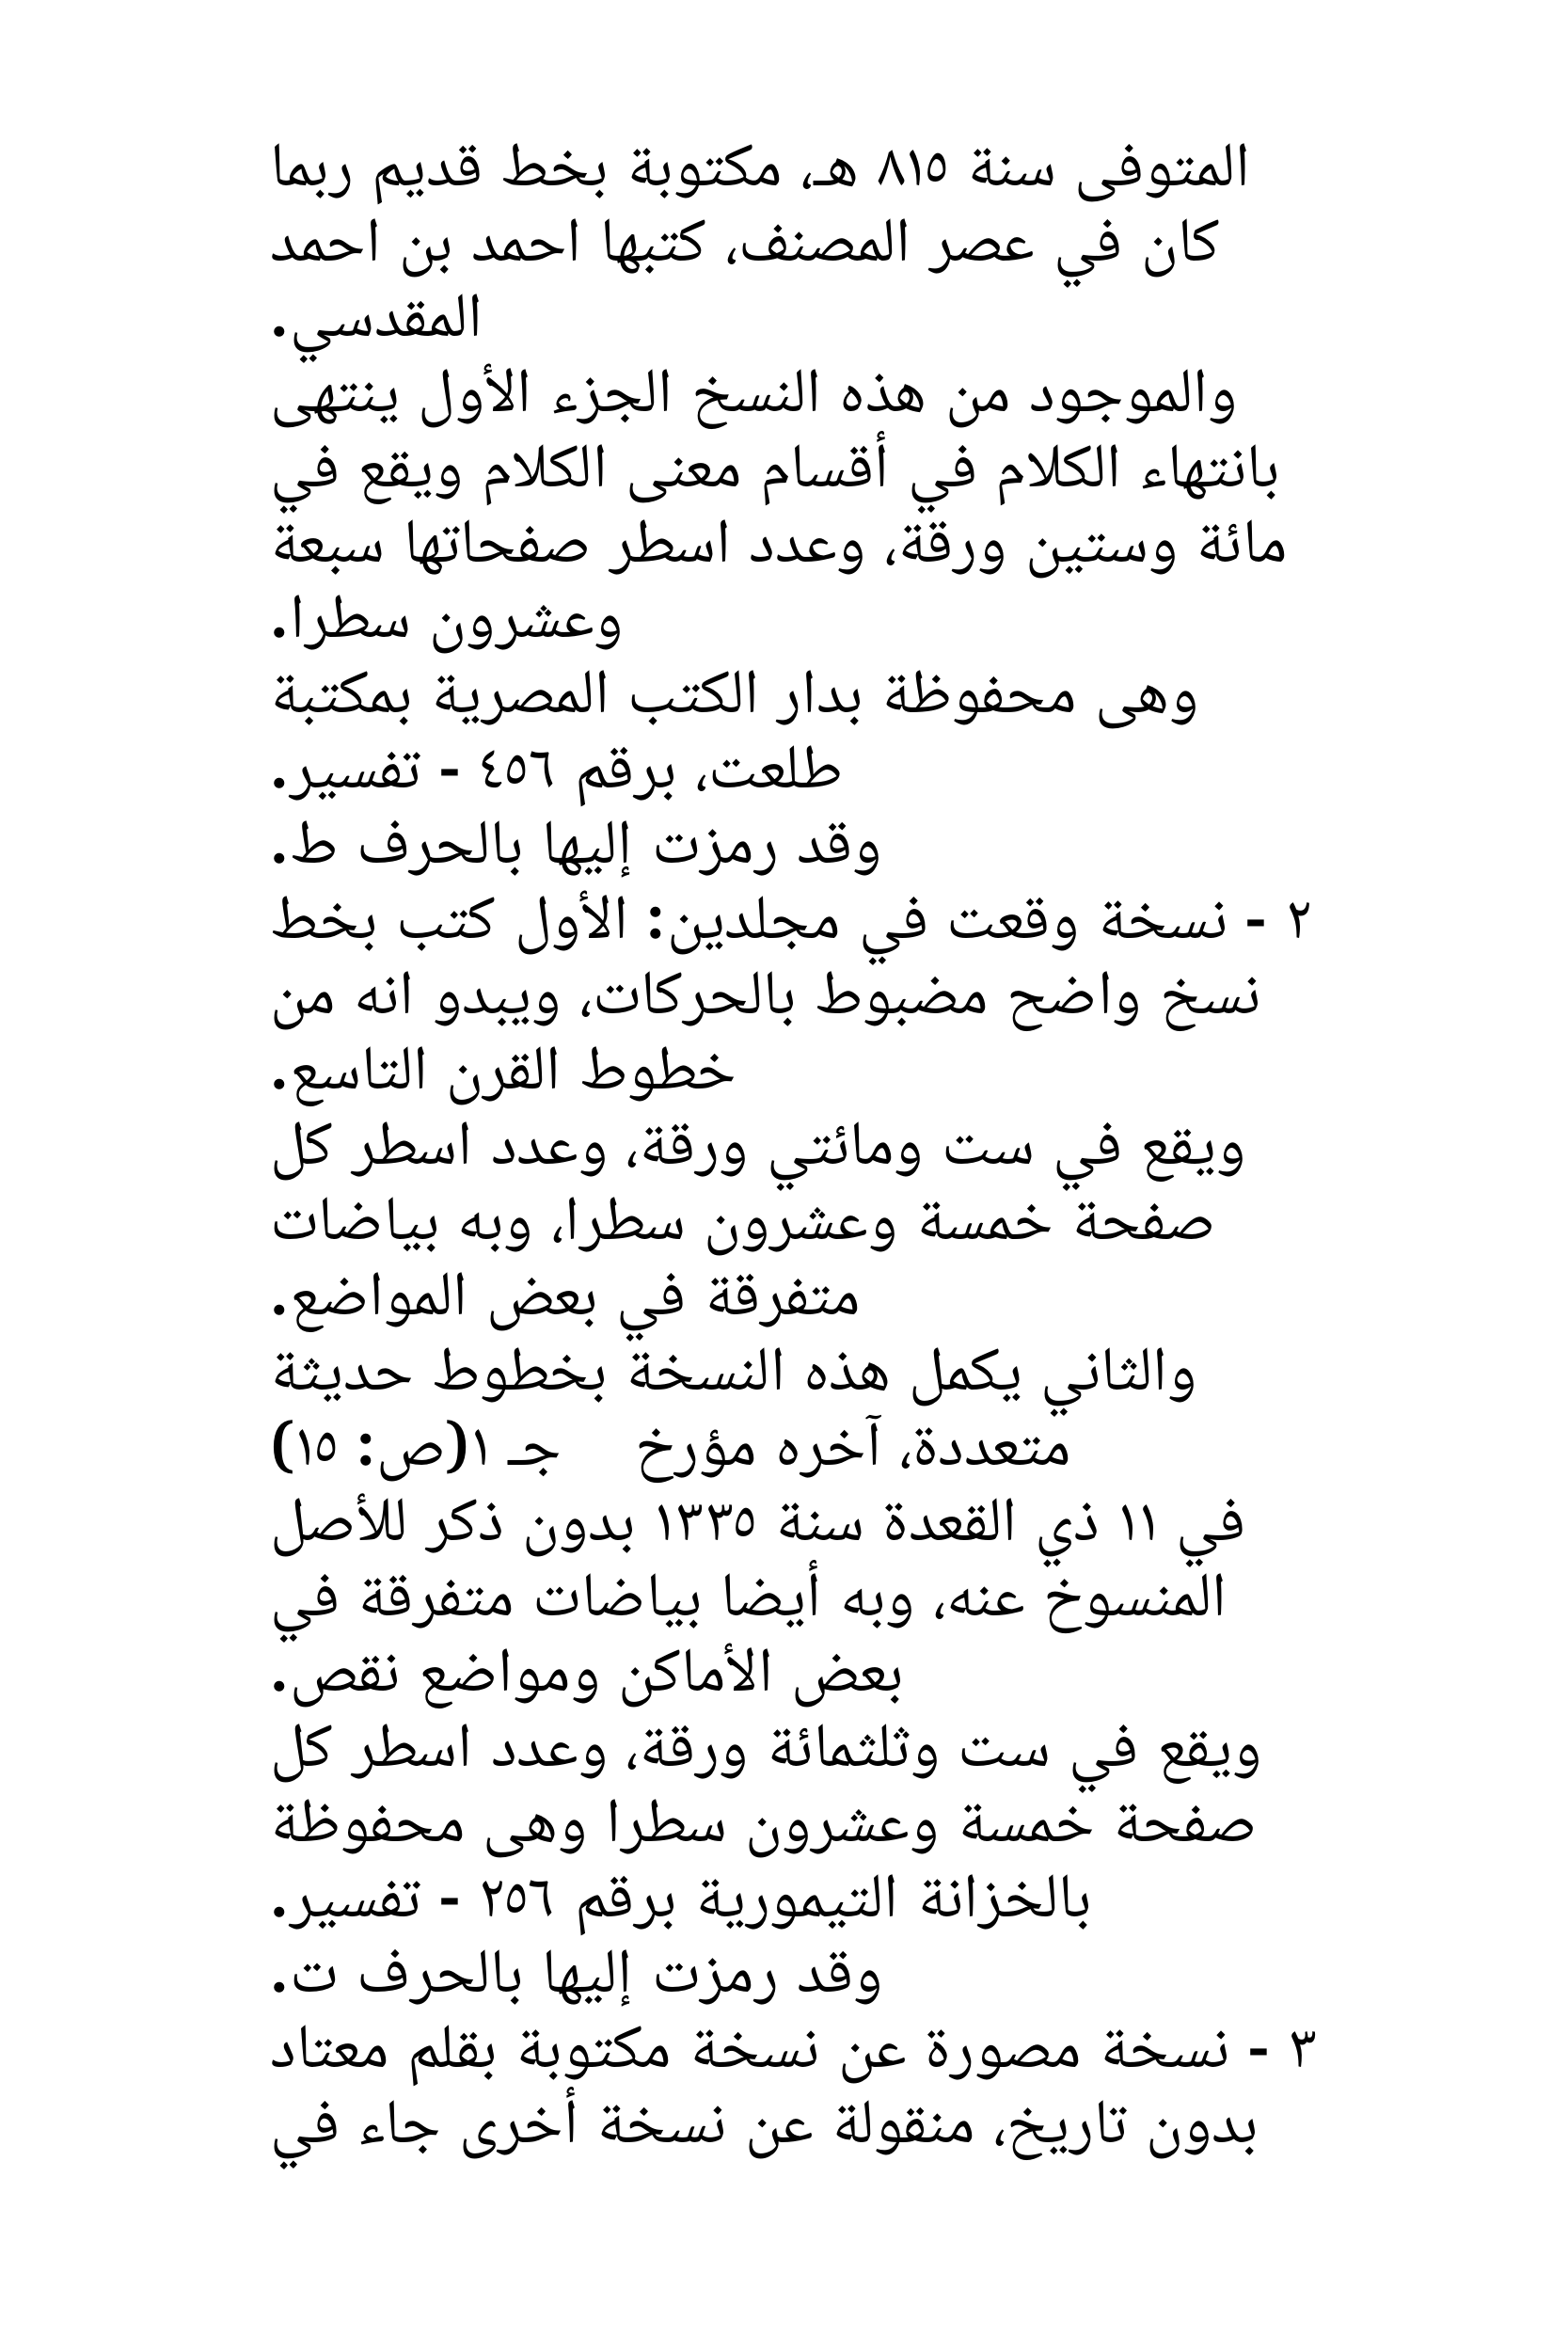 المتوفى سنة ٨١٥ هـ، مكتوبة بخط قديم ربما
كان في عصر المصنف، كتبها احمد بن احمد
المقدسي.
والموجود من هذه النسخ الجزء الأول ينتهى
بانتهاء الكلام في أقسام معنى الكلام ويقع في
مائة وستين ورقة، وعدد اسطر صفحاتها سبعة
وعشرون سطرا.
وهى محفوظة بدار الكتب المصرية بمكتبة
طلعت، برقم ٤٥٦ - تفسير.
وقد رمزت إليها بالحرف ط.
٢ - نسخة وقعت في مجلدين: الأول كتب بخط
نسخ واضح مضبوط بالحركات، ويبدو انه من
خطوط القرن التاسع.
ويقع في ست ومائتي ورقة، وعدد اسطر كل
صفحة خمسة وعشرون سطرا، وبه بياضات
متفرقة في بعض المواضع.
والثاني يكمل هذه النسخة بخطوط حديثة
متعددة، آخره مؤرخ    جـ ١(ص: ١٥)
في ١١ ذي القعدة سنة ١٣٣٥ بدون ذكر للأصل
المنسوخ عنه، وبه أيضا بياضات متفرقة في
بعض الأماكن ومواضع نقص.
ويقع في ست وثلثمائة ورقة، وعدد اسطر كل
صفحة خمسة وعشرون سطرا وهى محفوظة
بالخزانة التيمورية برقم ٢٥٦ - تفسير.
وقد رمزت إليها بالحرف ت.
٣ - نسخة مصورة عن نسخة مكتوبة بقلم معتاد
بدون تاريخ، منقولة عن نسخة أخرى جاء في